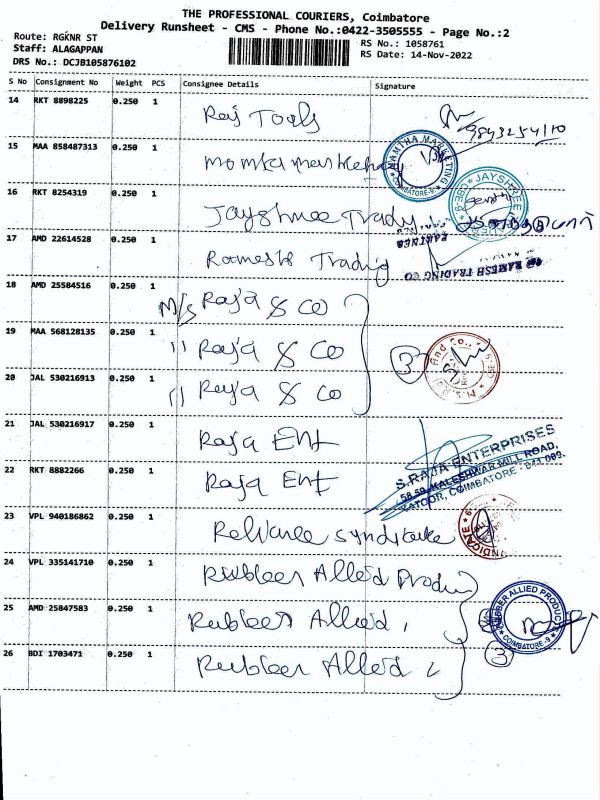 THE PROFESSIONAL COURIERS, Coimbatore
Delivery Runsheet - CMS - Phone No.:0422-3505555 - Page No.:2
Route: RGKNR ST
Staff: ALAGAPPAN
DRS No.: DCJB105876102
RS No.: 1058761
RS Date: 14-Nov-2022
S No Consignment No Weight PCS Consignee Details Signature
14 RKT 8898225 0.250 1 Raj Tools 9843254110
15 MAA 858487313 0.250 1 NAMITHA MARKETING COIMBATORE-9
16 RKT 8254319 0.250 1 Jayshree Trady JAYSHREE CBE-9
17 AMD 22614528 0.250 1 Ramesh Trading For RAMESH TRADING CO PARTNER
18 AMD 25584516 0.250 1 M/s Raja & Co
19 MAA 568128135 0.250 1 " Raja & Co 3 And Co.,
20 JAL 530216913 0.250 1 " Raja & Co
21 JAL 530216917 0.250 1 Raja Ent S.RAJA ENTERPRISES
22 RKT 8882266 0.250 1 Raja Ent 58,59, KALESHWAR MILL ROAD,
KATOOR, COIMBATORE - 641 009.
23 VPL 940186862 0.250 1 Reliance Syndicate
24 VPL 335141710 0.250 1 Rubber Allied Produ
25 AMD 25847583 0.250 1 Rubber Allied RUBBER ALLIED PRODUCTS COIMBATORE-9
26 BDI 1703471 0.250 1 Rubber Allied 3